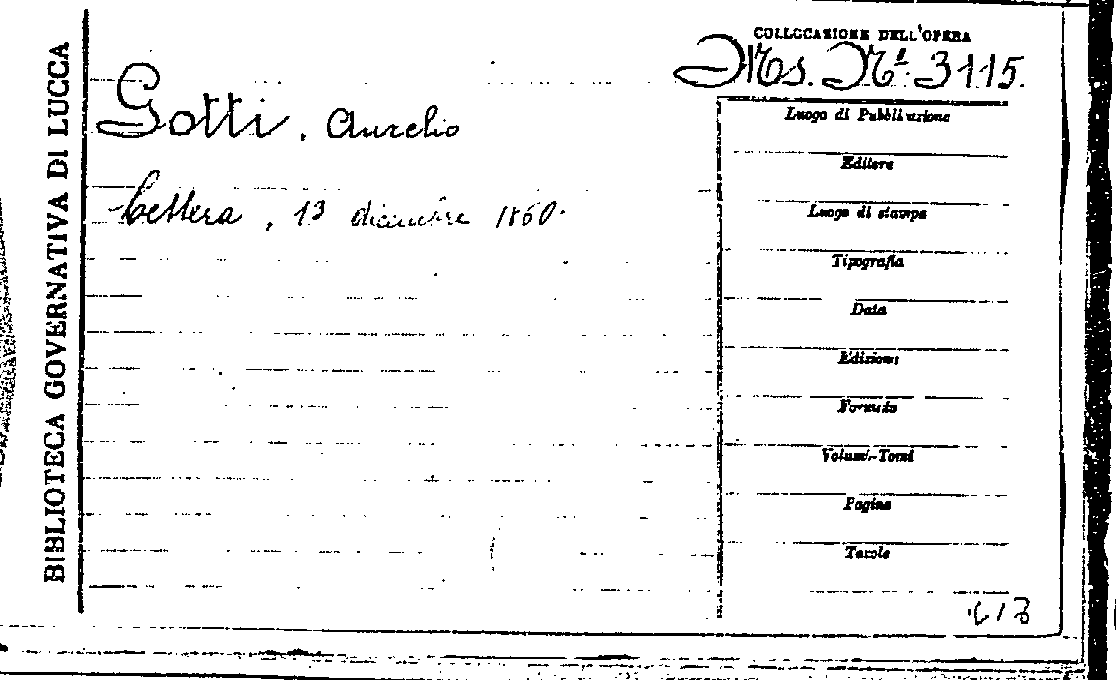 BIBLIOTECA GOVERNATIVA DI LUCCA
COLLOCAZIONE DELL'OPERA
Ms. N.º 3115.
Gotti, Aurelio
Lettera, 13 dicembre 1860.
Luogo di Pubblicazione
Editore
Luogo di stampa
Tipografia
Data
Edizione
Formato
Volumi-Tomi
Pagine
Tavole